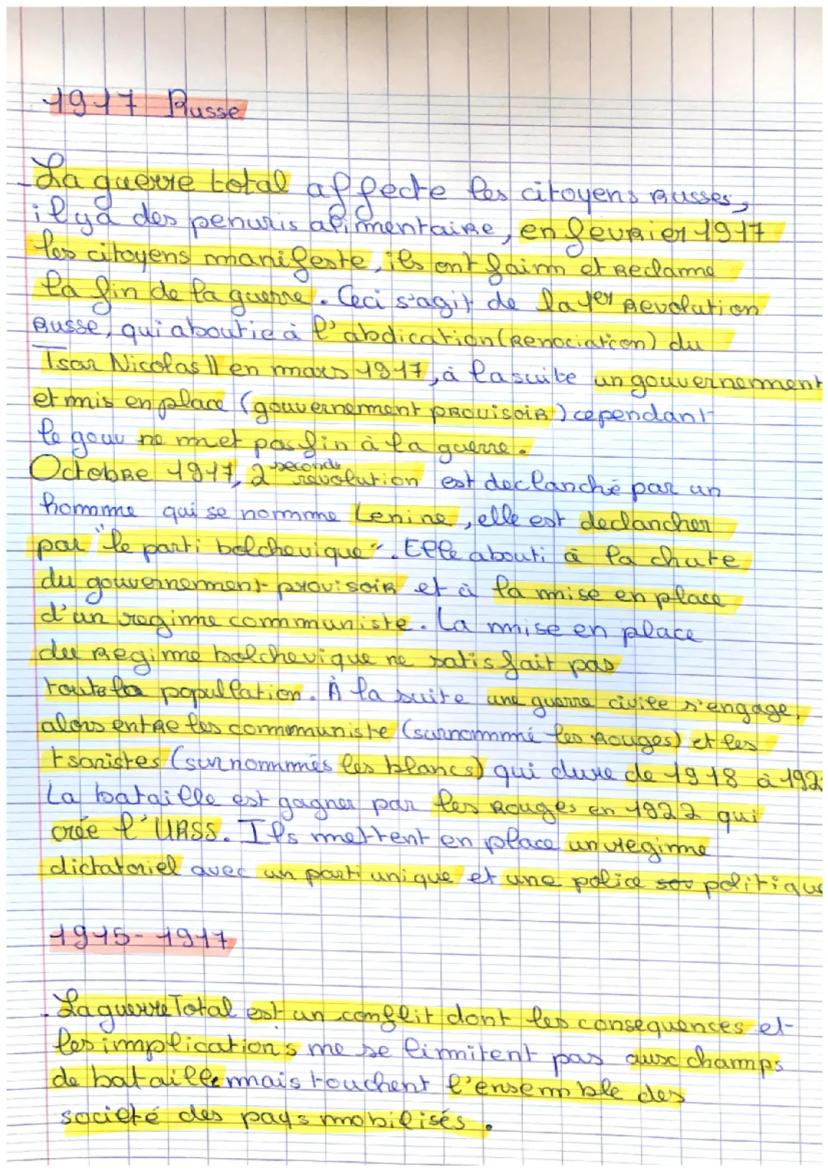 1917 Russe
La guerre total affecte les citoyens russes,
il y a des penuris alimentaire, en fevrier 1917
les citoyens manifeste, ils ont faim et reclame
la fin de la guerre. Ceci s'agit de la 1er Revolution
Russe, qui aboutie à l'abdication (Renociation) du
Tsar Nicolas II en mars 1917, à la suite un gouvernement
et mis en place (gouvernement provisoir) cependant
le gouv ne met pas fin à la guerre.
Octobre 1917, 2 seconde revolution est declanché par un
homme qui se nomme Lenine, elle est declancher
par "le parti bolchevique". Elle abouti à la chute
du gouvernement provisoir et à la mise en place
d'un regime communiste. La mise en place
du Regime bolchevique ne satisfait pas
toute la population. À la suite une guerre civile s'engage,
alors entre les communiste (surnommé les Rouges) et les
tsaristes (surnommés les blancs) qui dure de 1918 à 192
La bataille est gagner par les Rouges en 1922 qui
crée l'URSS. Ils mettent en place un regime
dictatoriel avec un parti unique et une police politique
1915-1917
La guerre Total est un conflit dont les consequences et
les implications me se limitent pas aux champs
de bataille mais touchent l'ensemble des
societé des pays mobilisés.